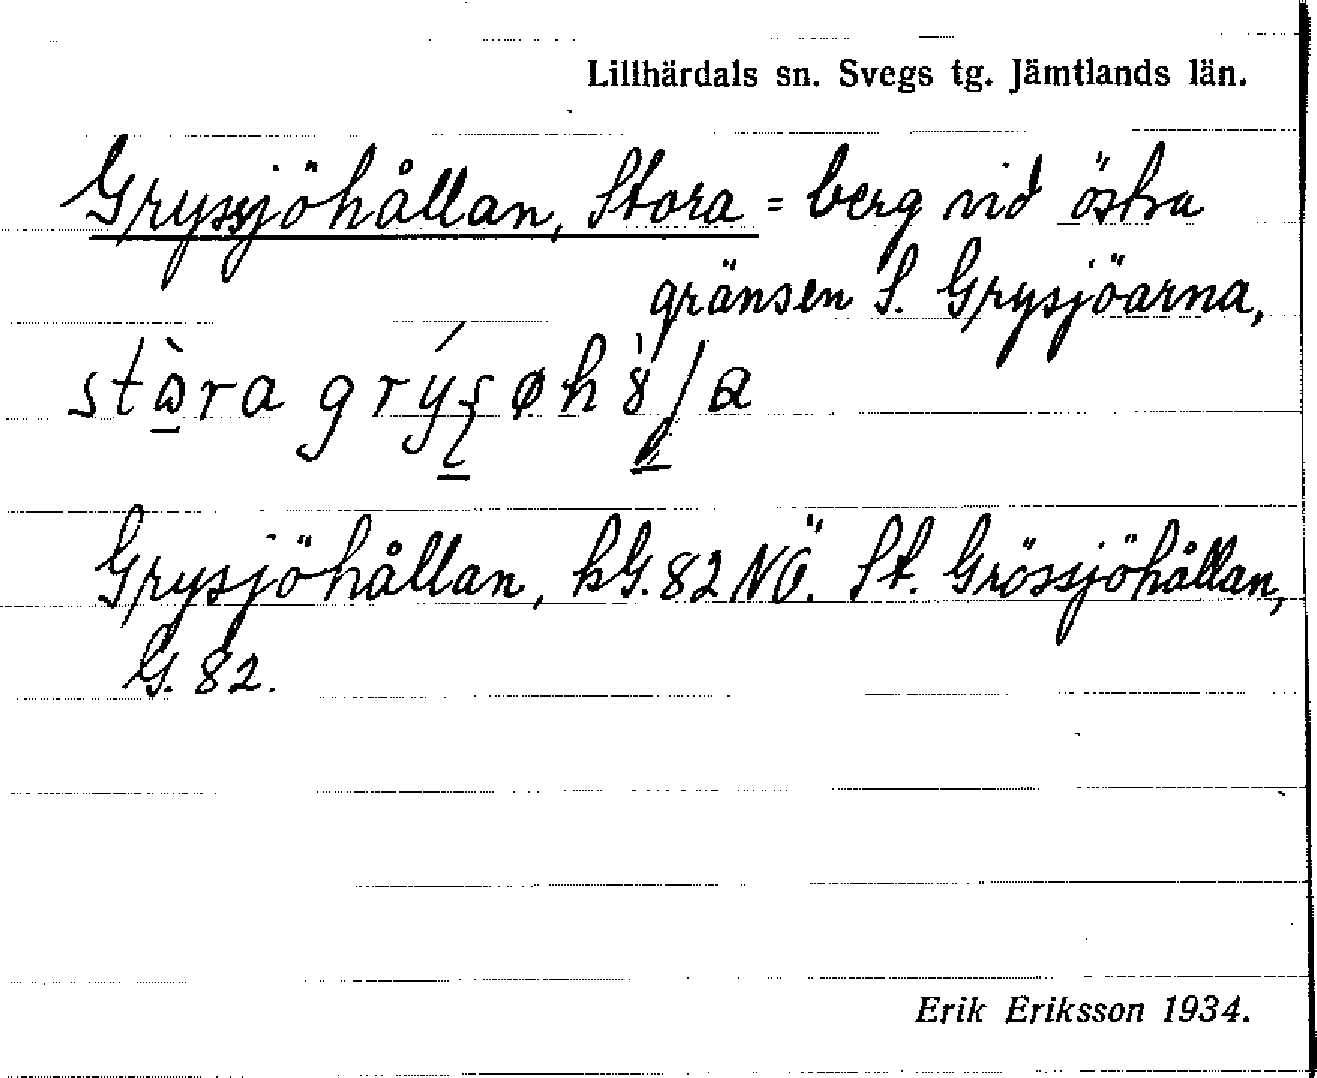 Lillhärdals sn. Svegs tg. Jämtlands län.
Gryssjöhållan, Stora = berg vid östra
gränsen S. Grysjöarna,
Grysjöhållan, hG. 82 NÖ. St. Grössjöhållan,
G. 82.
Erik Eriksson 1934.